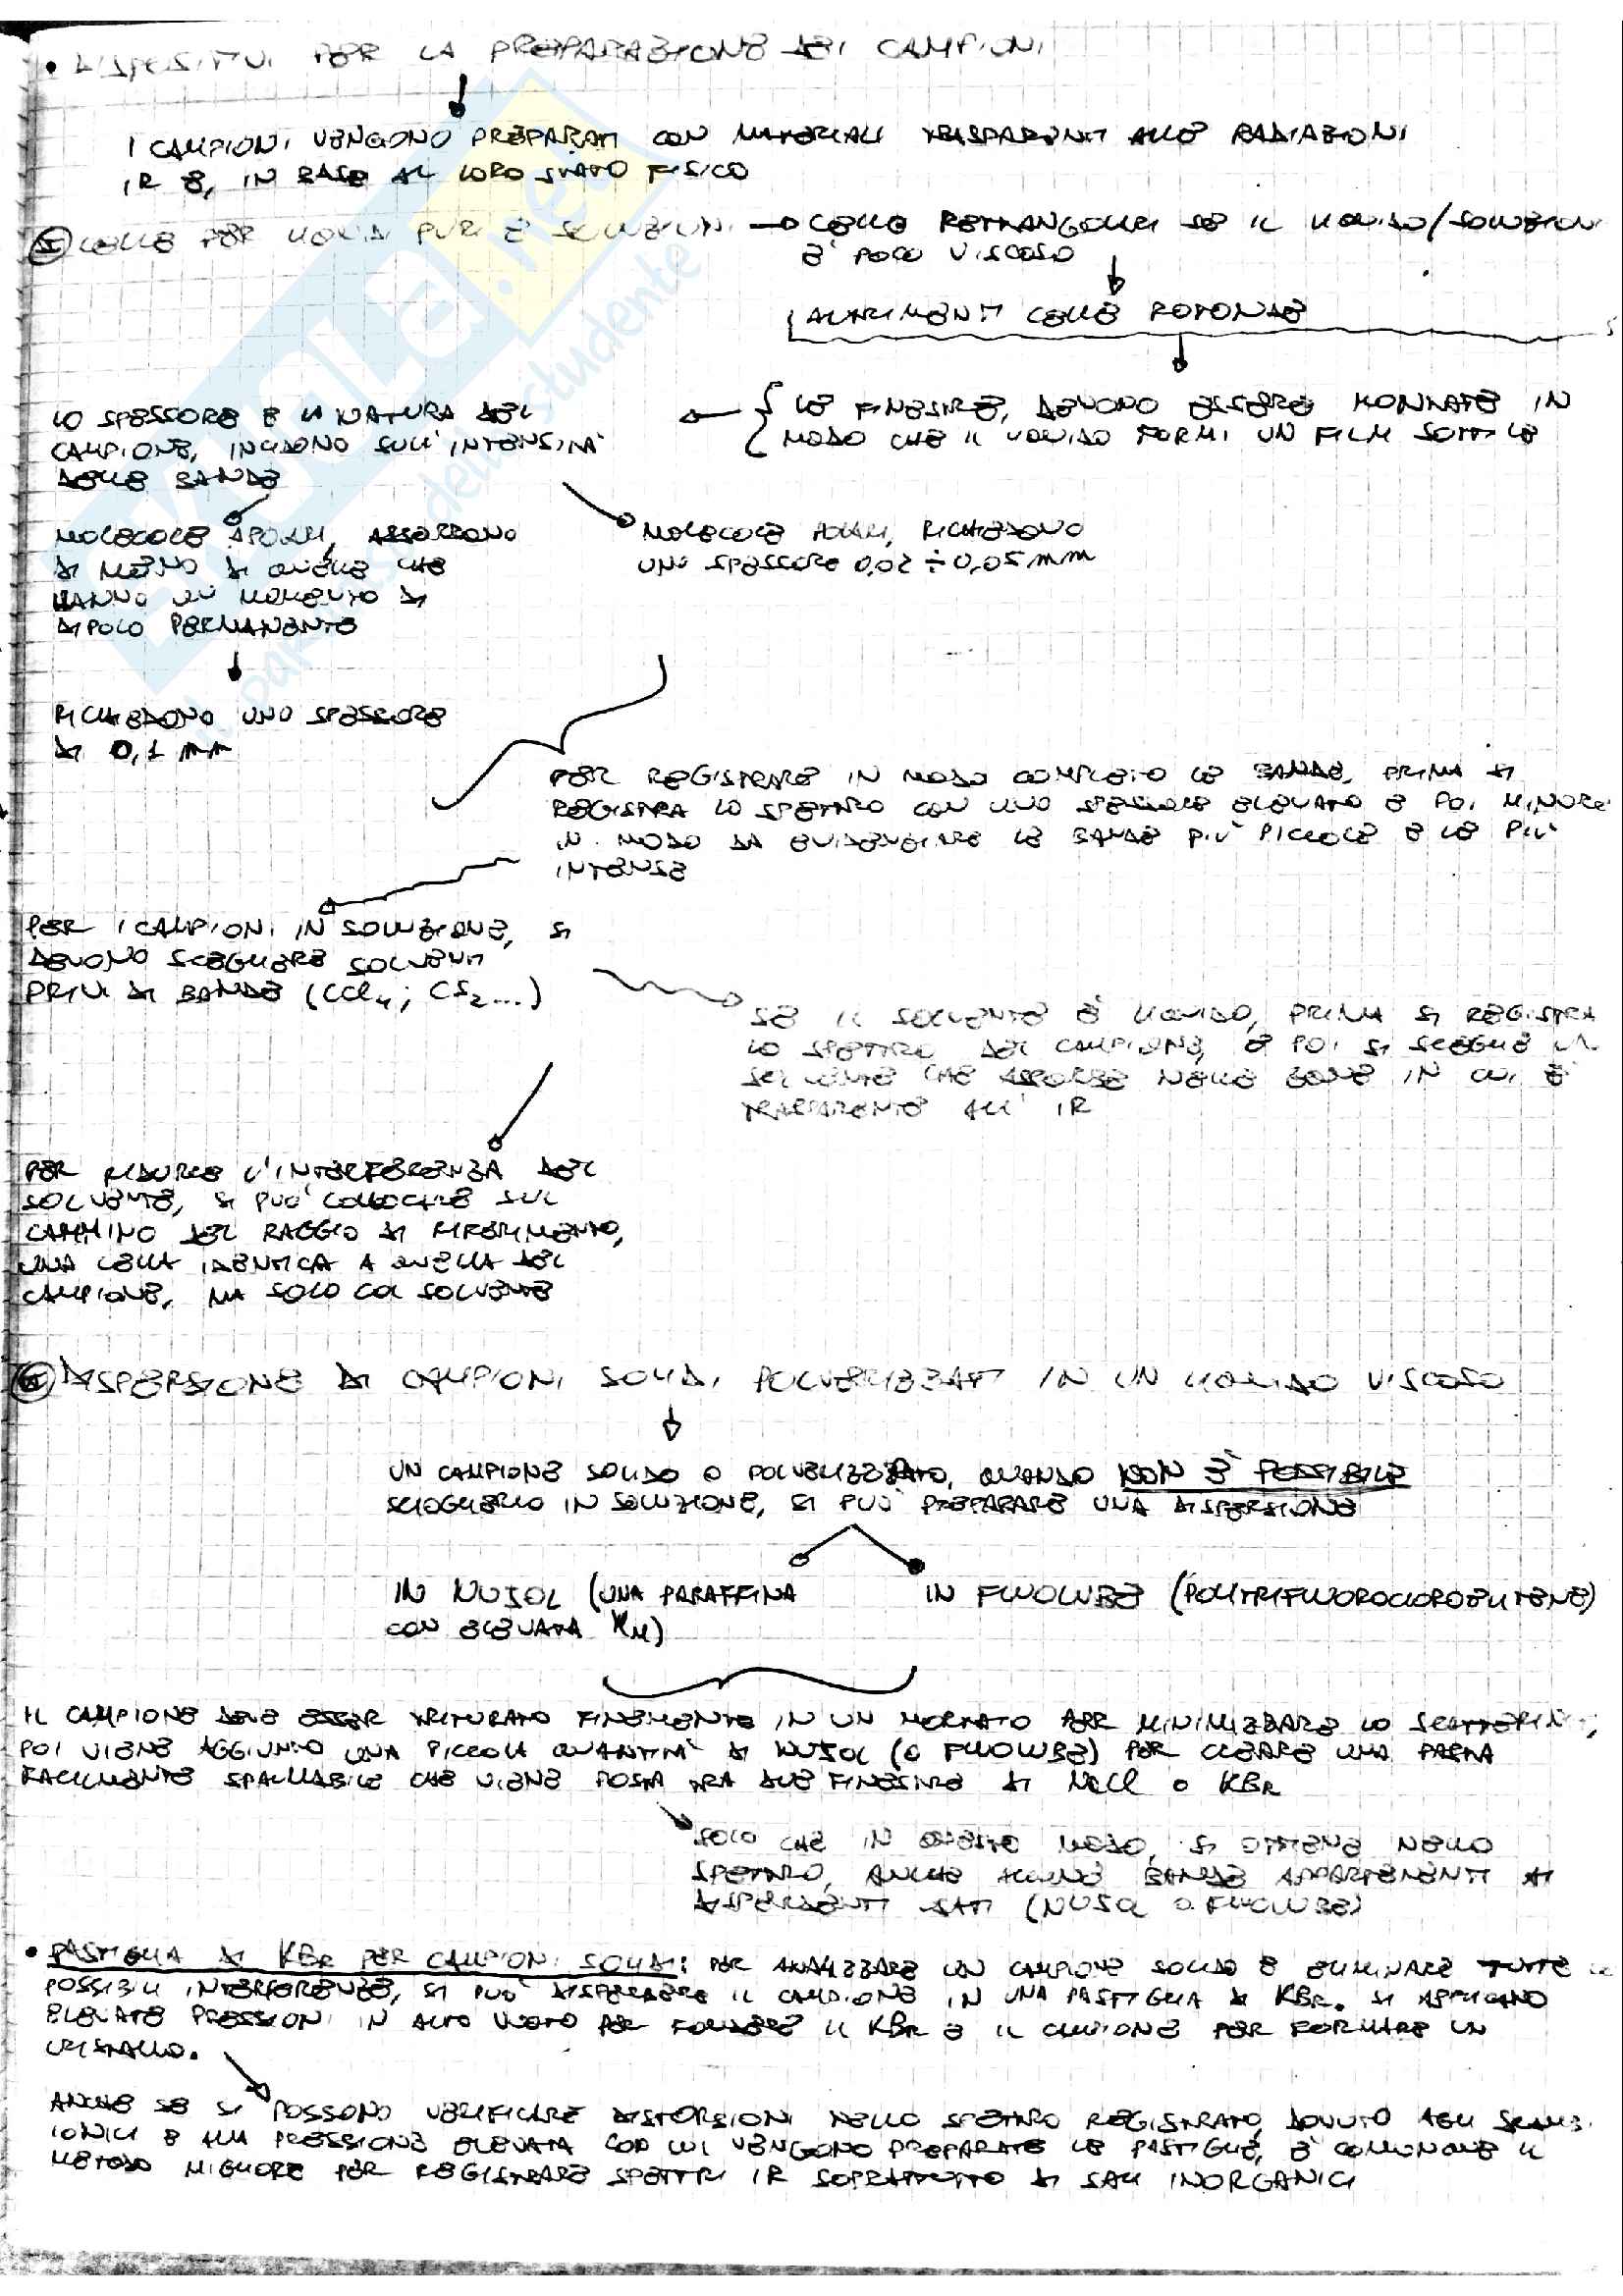 • DISPOSITIVI PER LA PREPARAZIONE DEI CAMPIONI
I CAMPIONI VENGONO PREPARATI CON MATERIALI TRASPARENTI ALLE RADIAZIONI
IR E, IN BASE AL LORO STATO FISICO
CELLE PER LIQUIDI PURI E SOLUZIONI → CELLE RETTANGOLARI SE IL LIQUIDO/SOLUZIONE
È POCO VISCOSO
ALTRIMENTI CELLE ROTONDE
{ LE FINESTRE, DEVONO ESSERE MONTATE IN
MODO CHE IL LIQUIDO FORMI UN FILM SOTTILE
LO SPESSORE E LA NATURA DEL
CAMPIONE, INCIDONO SULL'INTENSITÀ
DELLE BANDE
MOLECOLE APOLARI, ASSORBONO
DI MENO DI QUELLE CHE
HANNO UN MOMENTO DI
DIPOLO PERMANENTE
RICHIEDONO UNO SPESSORE
DI 0,1 mm
MOLECOLE POLARI, RICHIEDONO
UNO SPESSORE 0,02 ÷ 0,05 mm
PER REGISTRARE IN MODO COMPLETO LE BANDE, PRIMA SI
REGISTRA LO SPETTRO CON UNO SPESSORE ELEVATO E POI MINORE
IN MODO DA EVIDENZIARE LE BANDE PIÙ PICCOLE E LE PIÙ
INTENSE
PER I CAMPIONI IN SOLUZIONE, SI
DEVONO SCEGLIERE SOLVENTI
PRIVI DI BANDE (CCl4; CS2...)
SE IL SOLVENTE È LIQUIDO, PRIMA SI REGISTRA
LO SPETTRO DEL CAMPIONE, E POI SI SCEGLIE UN
SOLVENTE CHE ASSORBE NELLE ZONE IN CUI È
TRASPARENTE ALL'IR
PER RIDURRE L'INTERFERENZA DEL
SOLVENTE, SI PUÒ COLLOCARE SUL
CAMMINO DEL RAGGIO DI RIFERIMENTO,
UNA CELLA IDENTICA A QUELLA DEL
CAMPIONE, MA SOLO COL SOLVENTE
DISPERSIONE DI CAMPIONI SOLIDI POLVERIZZATI IN UN LIQUIDO VISCOSO
UN CAMPIONE SOLIDO O POLVERIZZATO, QUANDO NON È POSSIBILE
SCIOGLIERLO IN SOLUZIONE, SI PUÒ PREPARARE UNA DISPERSIONE
IN NUJOL (UNA PARAFFINA
CON ELEVATA
IN FLUOLUBE (POLITRIFLUOROCLOROETILENE)
IL CAMPIONE DEVE ESSER TRITURATO FINEMENTE IN UN MORTAIO PER MINIMIZZARE LO SCATTERING,
POI VIENE AGGIUNTO UNA PICCOLA QUANTITÀ DI NUJOL (O FLUOLUBE) PER CREARE UNA PASTA
FACILMENTE SPALMABILE CHE VIENE POSTA TRA DUE FINESTRE DI NaCl O KBr
SOLO CHE IN QUESTO MODO, SI OTTIENE NELLO
SPETTRO, ANCHE ALCUNE BANDE APPARTENENTI AI
DISPERDENTI USATI (NUJOL O FLUOLUBE)
• PASTIGLIA DI KBr PER CAMPIONI SOLIDI: PER ANALIZZARE UN CAMPIONE SOLIDO E ELIMINARE TUTTE LE
POSSIBILI INTERFERENZE, SI PUÒ DISPERDERE IL CAMPIONE IN UNA PASTIGLIA DI KBr. SI APPLICANO
ELEVATE PRESSIONI IN ALTO VUOTO PER FONDERE IL KBr E IL CAMPIONE PER FORMARE UN
CRISTALLO.
ANCHE SE SI POSSONO VERIFICARE DISTORSIONI NELLO SPETTRO REGISTRATO, DOVUTO AGLI SCAMBI
IONICI E ALLA PRESSIONE ELEVATA CON CUI VENGONO PREPARATE LE PASTIGLIE, È COMUNQUE IL
METODO MIGLIORE PER REGISTRARE SPETTRI IR SOPRATTUTTO DI SALI INORGANICI